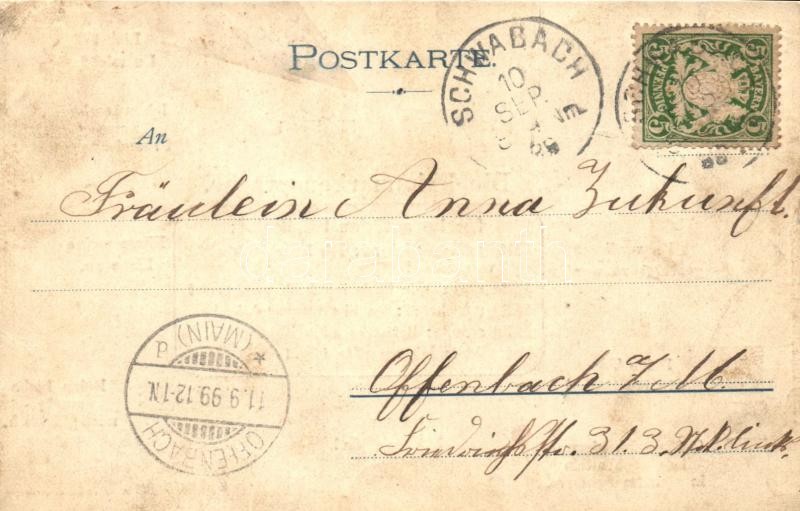 POSTKARTE.
SCHWABACH
10
SEP.
5 5
BAYERN
An
Fräulein Anna Zukunft.
darabanth
Offenbach a/M.
Friedrichstr. 31. 3. St. links
OFFENBACH
11.9.99.12-1N.
(MAIN) P